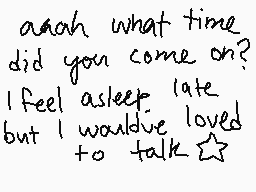 aaah what time
did you come on?
I feel asleep late
but I would've loved
to talk ☆